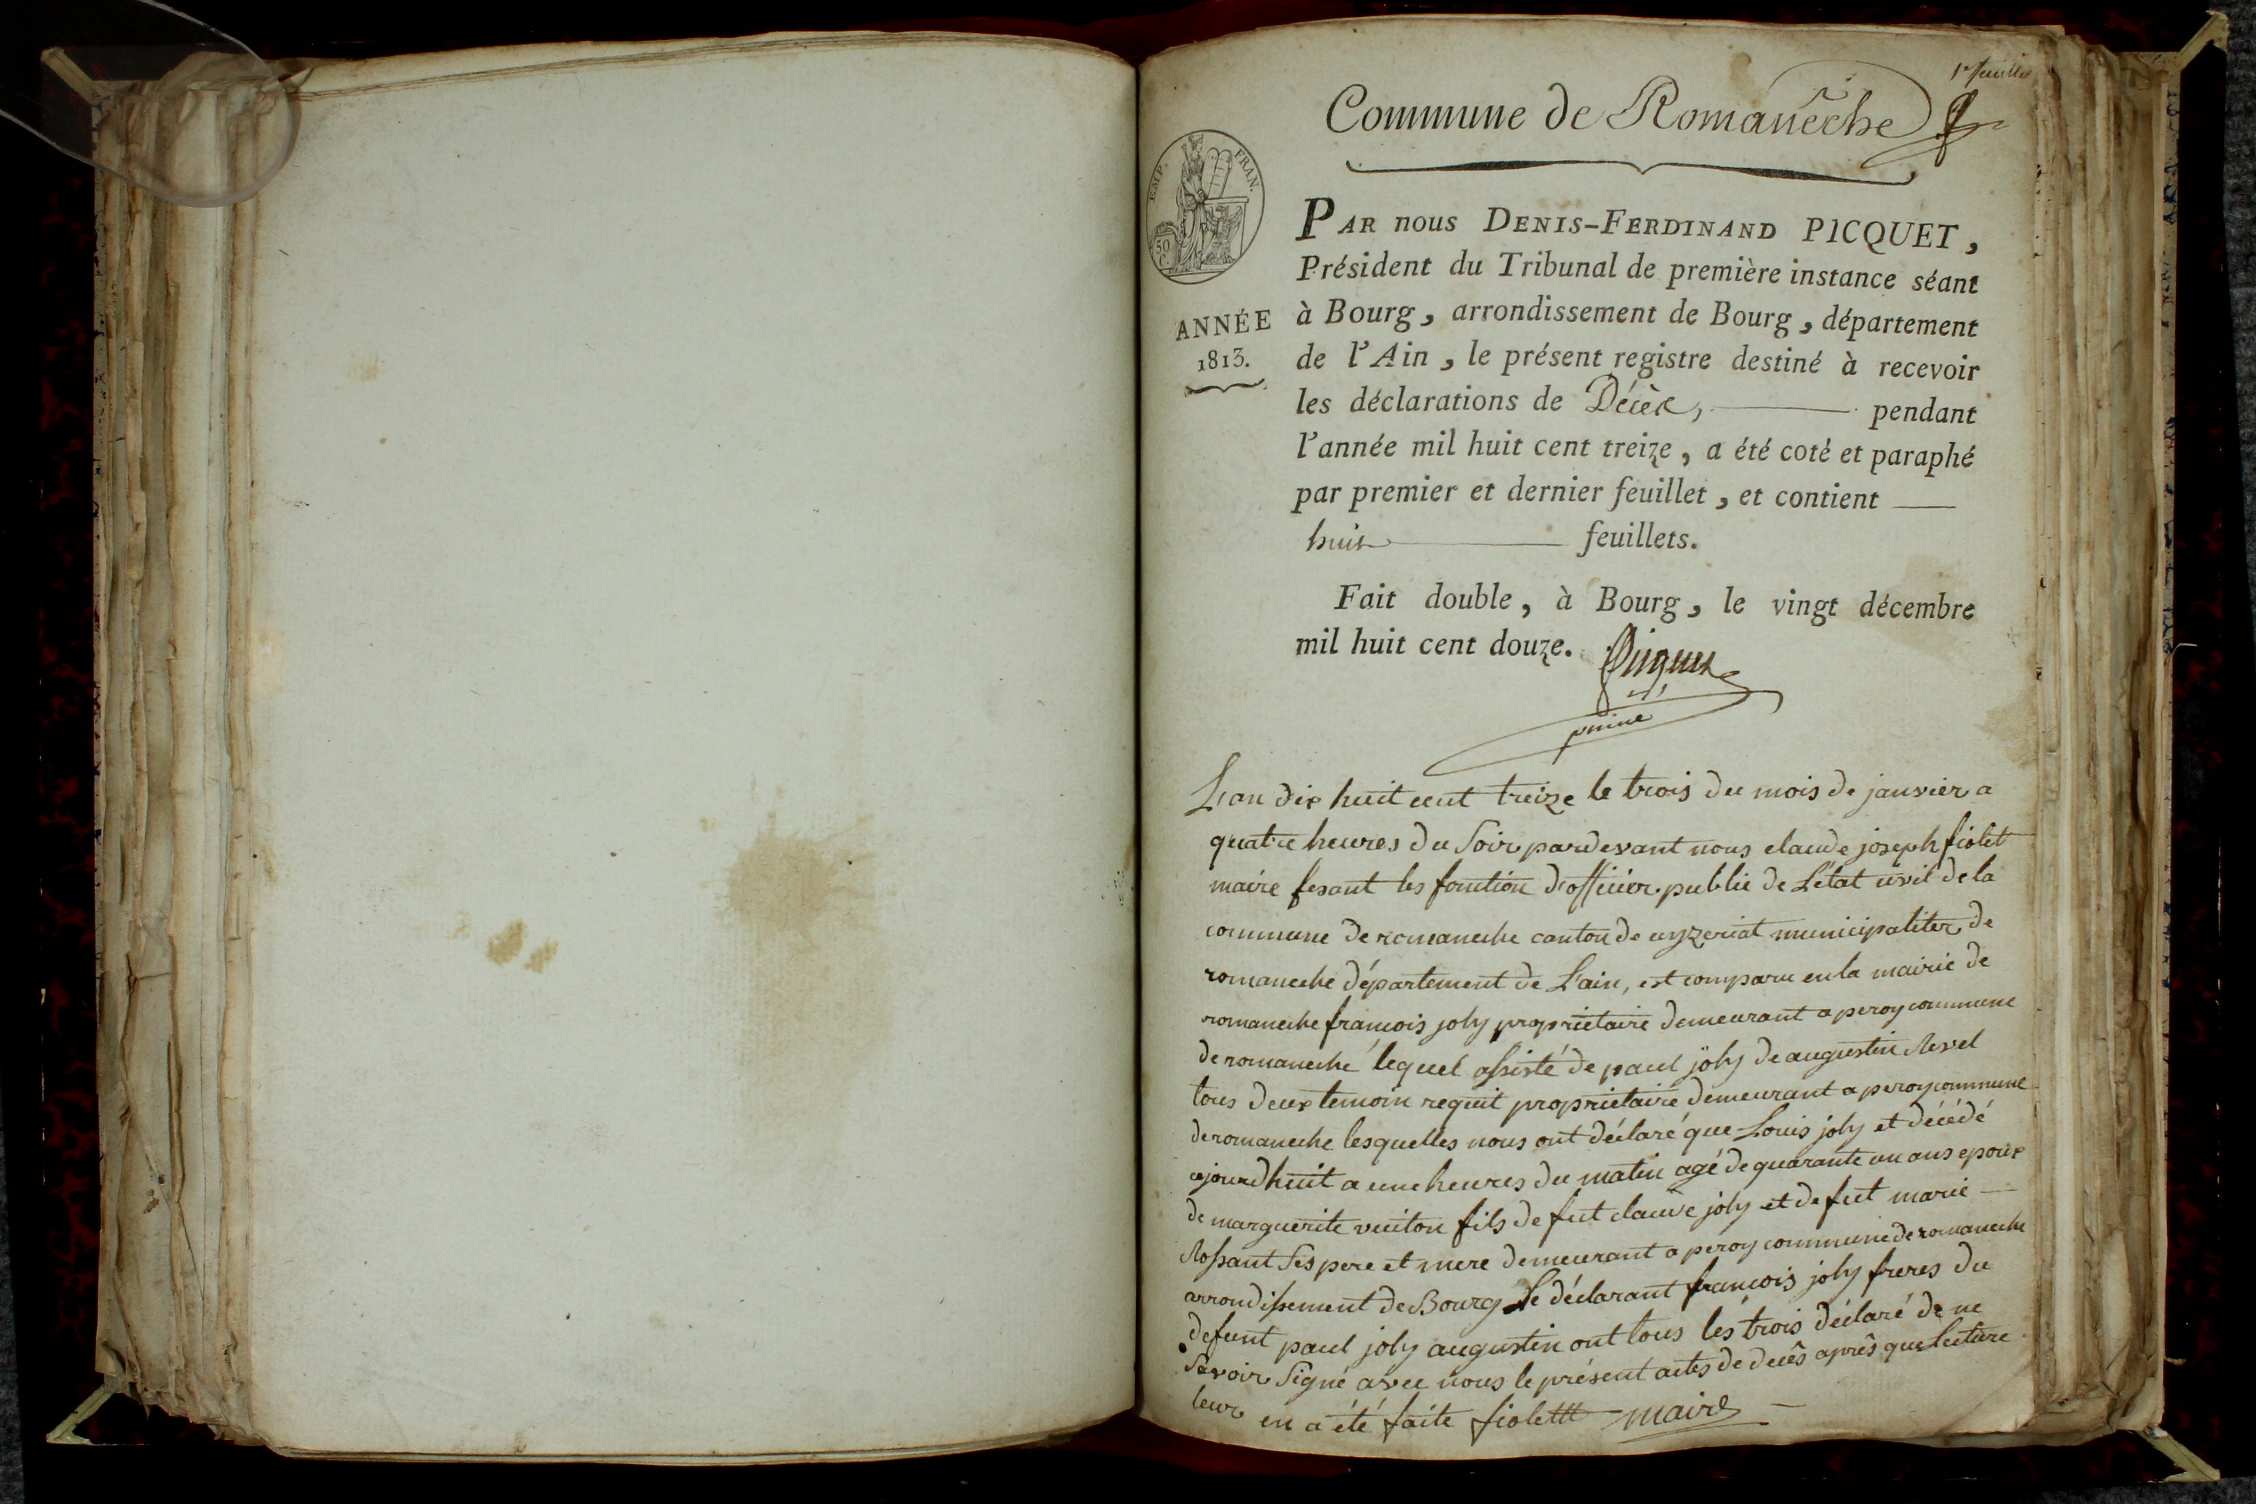 1er feuillet
Commune de Romanêche
EMP. FRAN.
50 C.
ANNÉE
1813.
PAR nous DENIS-FERDINAND PICQUET,
Président du Tribunal de première instance séant
à Bourg, arrondissement de Bourg, département
de l'Ain, le présent registre destiné à recevoir
les déclarations de Décès, pendant
l'année mil huit cent treize, a été coté et paraphé
par premier et dernier feuillet, et contient
huit feuillets.
Fait double, à Bourg, le vingt décembre
mil huit cent douze. Picquet
L'an dix huit cent treize le trois du mois de janvier a
quatre heures du Soir pardevant nous claude joseph fiolet
maire fesant les fonction d'officier public de L'état civil de la
commune de romaneche canton de ceyzeriat municipaliter de
romaneche département de L'ain, est comparu en la mairie de
romaneche francois joly propriétaire demeurant a peroy commune
de romaneche lequel assisté de paul joly de augustin Revel
tous deux temoin requit propriétaire demeurant a peroy commune
de romaneche lesquelles nous ont déclaré que Louis joly et décédé
cejourdhuit a une heures du matin agé de quarante un ans epoux
de marguerite vuiton fils de fut claude joly et de fut marie
Rossant Ses pere et mere demeurant a peroy commune de romaneche
arrondissement de Bourg Le déclarant francois joly freres du
defunt paul joly augustin ont tous les trois déclaré de ne
Savoir Signé avec nous le présent actes de decês aprês que lecture
leur en a été faite fiolettt maire